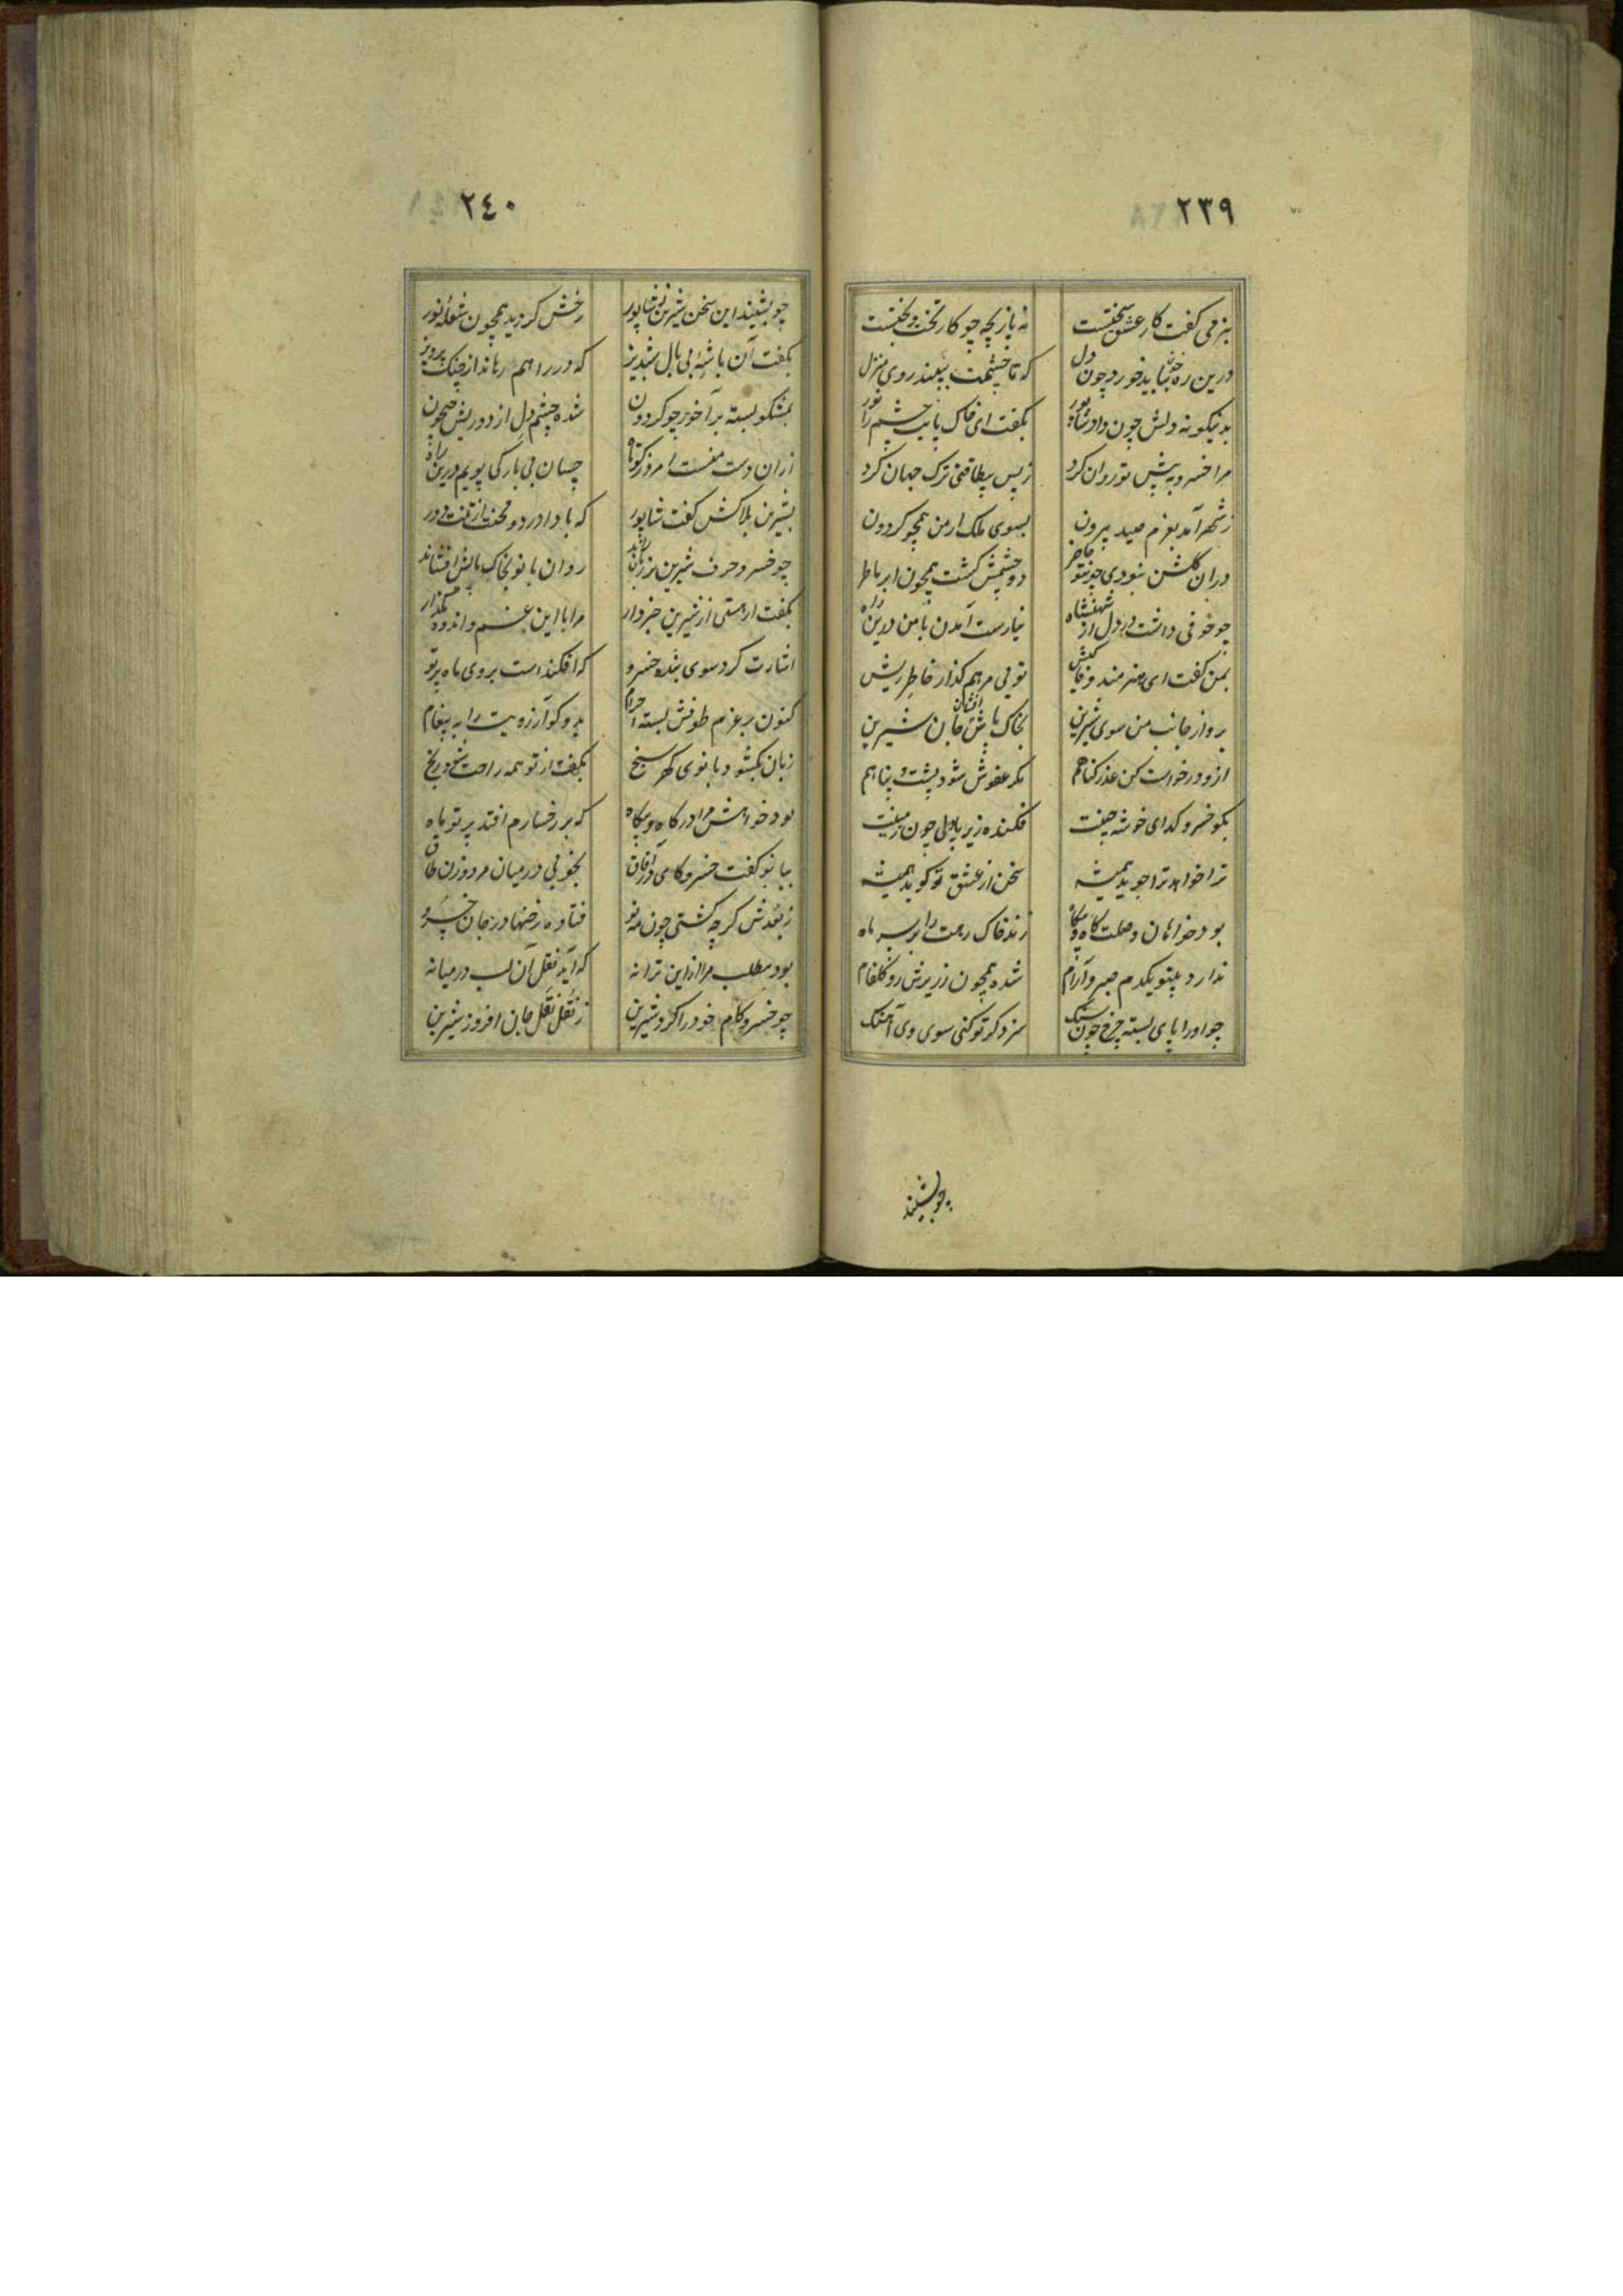 ٢٣٩
بنرمی کفت کار عشق سختست
نه بازیچه چو کار تخت و بختست
درین ره باید خوردن چون دل
که تا چشمت ببیند روی منزل
بدینکونه دلش چون داد شاپور
بکفت ای خاک پایت چشم را نور
مرا خسرو به پیش تو روان کرد
ز پس بیطاقتی ترک جهان کرد
ز شهر آمد بعزم صید بیرون
بسوی ملک ارمن همچو کردون
دران کلشن نبودی چونتو حاضر
دو چشمش کشت همچون ابر ماطر
چو خوفی داشت در دل از شهنشاه
نیارست آمدن با من درین راه
بمن کفت ای هنرمند وفا کیش
تویی مرهم کذار خاطر ریش
برو از جانب من سوی شیرین
بخاک پاش افشان جان شیرین
ازو درخواست کن عذر کناهم
مکر عفوش شود پشت و پناهم
بکو خسرو کدای خوشه چینت
فکنده زیر پا دل چون زمینت
ترا خواهد ترا جوید همیشه
سخن از عشق تو کوید همیشه
بود خواهان وصلت کاه و بیکاه
زند خاک رهت را بر سر ماه
ندارد بیتو یکدم صبر و آرام
شده همچون زریرش رو کلفام
چو او را پای بسته چرخ چون سنک
سزد کر تو کنی سوی وی آهنک
چو بشنید
٢٤٠
چو بشنید این سخن شیرین ز شاپور
رخش کردید همچون شعله نور
بکفت آن باشه بی بال شبدیز
که در ره هم رهاند از چنک پرویز
بمشکو بسته بر آخور چو کردون
شده چشم دل از دوریش جیحون
ازان دست منست امروز کوتاه
چسان بی بارکی پویم درین راه
بشیرین بلاکش کفت شاپور
که بادا درد و محنت از تنت دور
چو خسرو حرف شیرین بر زبان راند
روان بانو بخاک پایش افشاند
بکفت ار هستی از شیرین خبردار
مرا با این غم و اندوه مکذار
اشارت کرد سوی بنده خسرو
که افکندست بروی ماه پرتو
کنون بر عزم طوفش بسته احرام
بدو کو آرزویت را به پیغام
زبان بکشود بانوی کهر سنج
بکفت از تو همه راحت شود رنج
بود خواهش مرا در کاه و بیکاه
که بر رخسارم افتد پرتو ماه
ببانو کفت خسرو کای در آفاق
بخوبی در میان مرد و زن طاق
ز بعدش کرچه کشتی چون مه نو
فتاده رخنها در جان خسرو
بود مطلب مرا از این ترانه
که آید نقل آن لب در میانه
چو خسرو کام خود را کرد شیرین
ز نقل نقل جان افروز شیرین